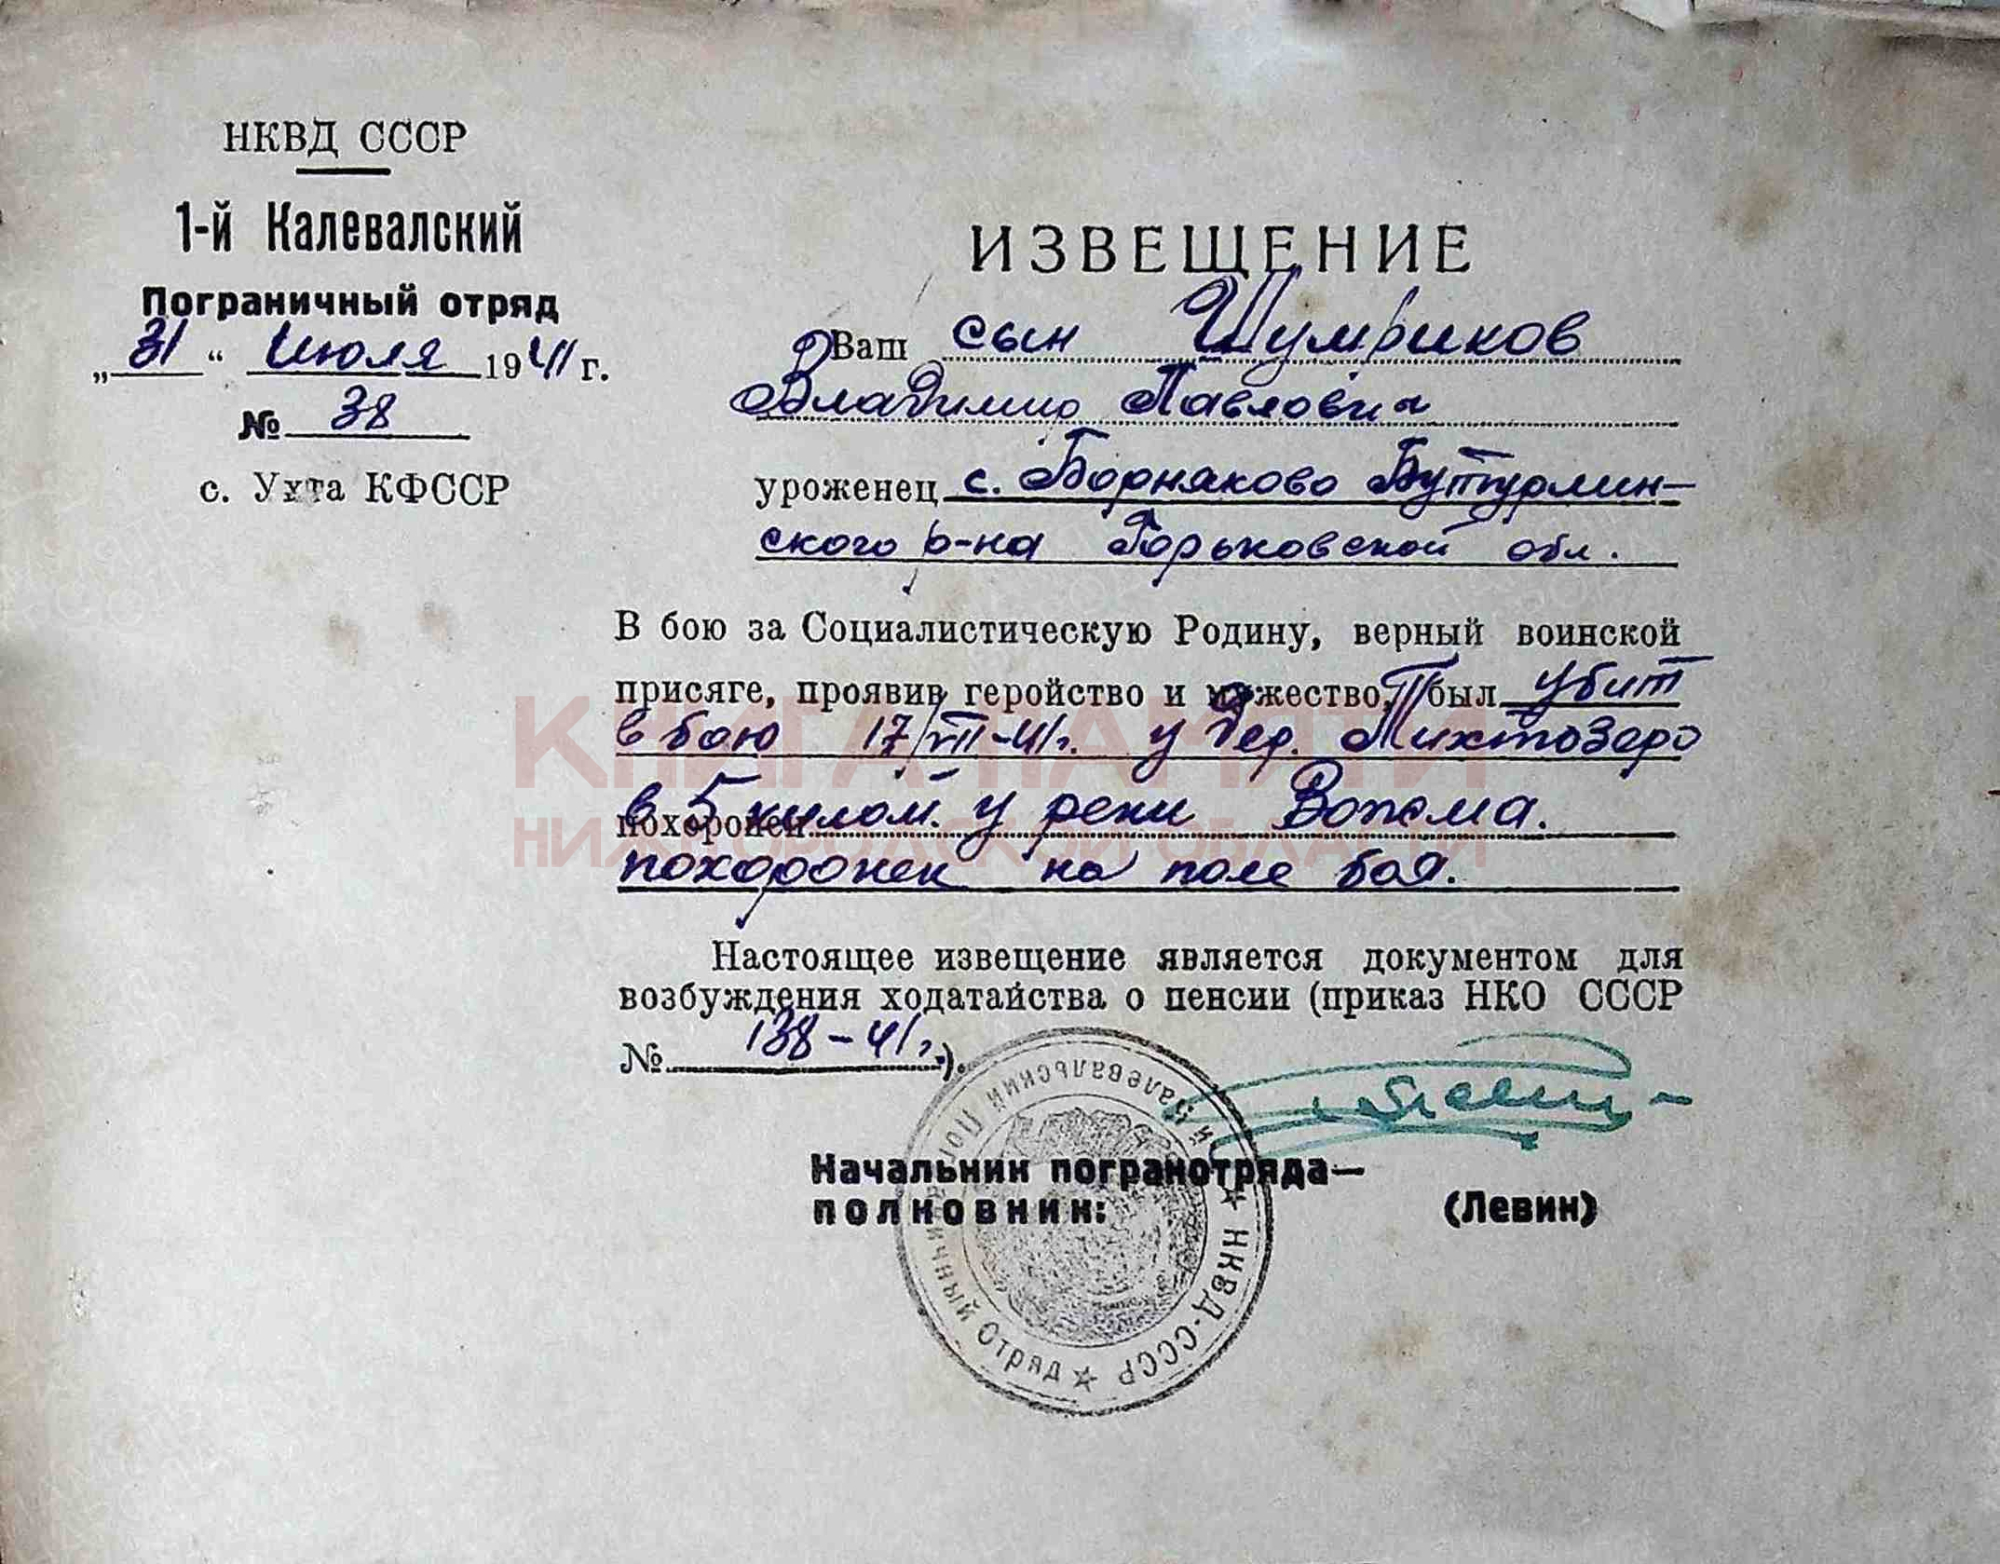 НКВД СССР
1-й Калевалский
Пограничный отряд
„31“ Июля 1941 г.
№ 38
с. Ухта КФССР
ИЗВЕЩЕНИЕ
Ваш сын Шумриков
Владимир Павлович
уроженец с. Борняково Бутурлин-
ского р-на Горьковской обл.
В бою за Социалистическую Родину, верный воинской
присяге, проявив геройство и мужество, был убит
в бою 17/VII-41г. у дер. Тихтозеро
в 5 килом. у реки
похоронен
похоронен на поле боя.
Настоящее извещение является документом для
возбуждения ходатайства о пенсии (приказ НКО СССР
№ 138-41г.).
Начальник погранотряда—
полковник: (Левин)
Калевальский Пограничный Отряд ☆ НКВД-СССР ☆
КНИГА ПАМЯТИ
НИЖЕГОРОДСКОЙ ОБЛАСТИ